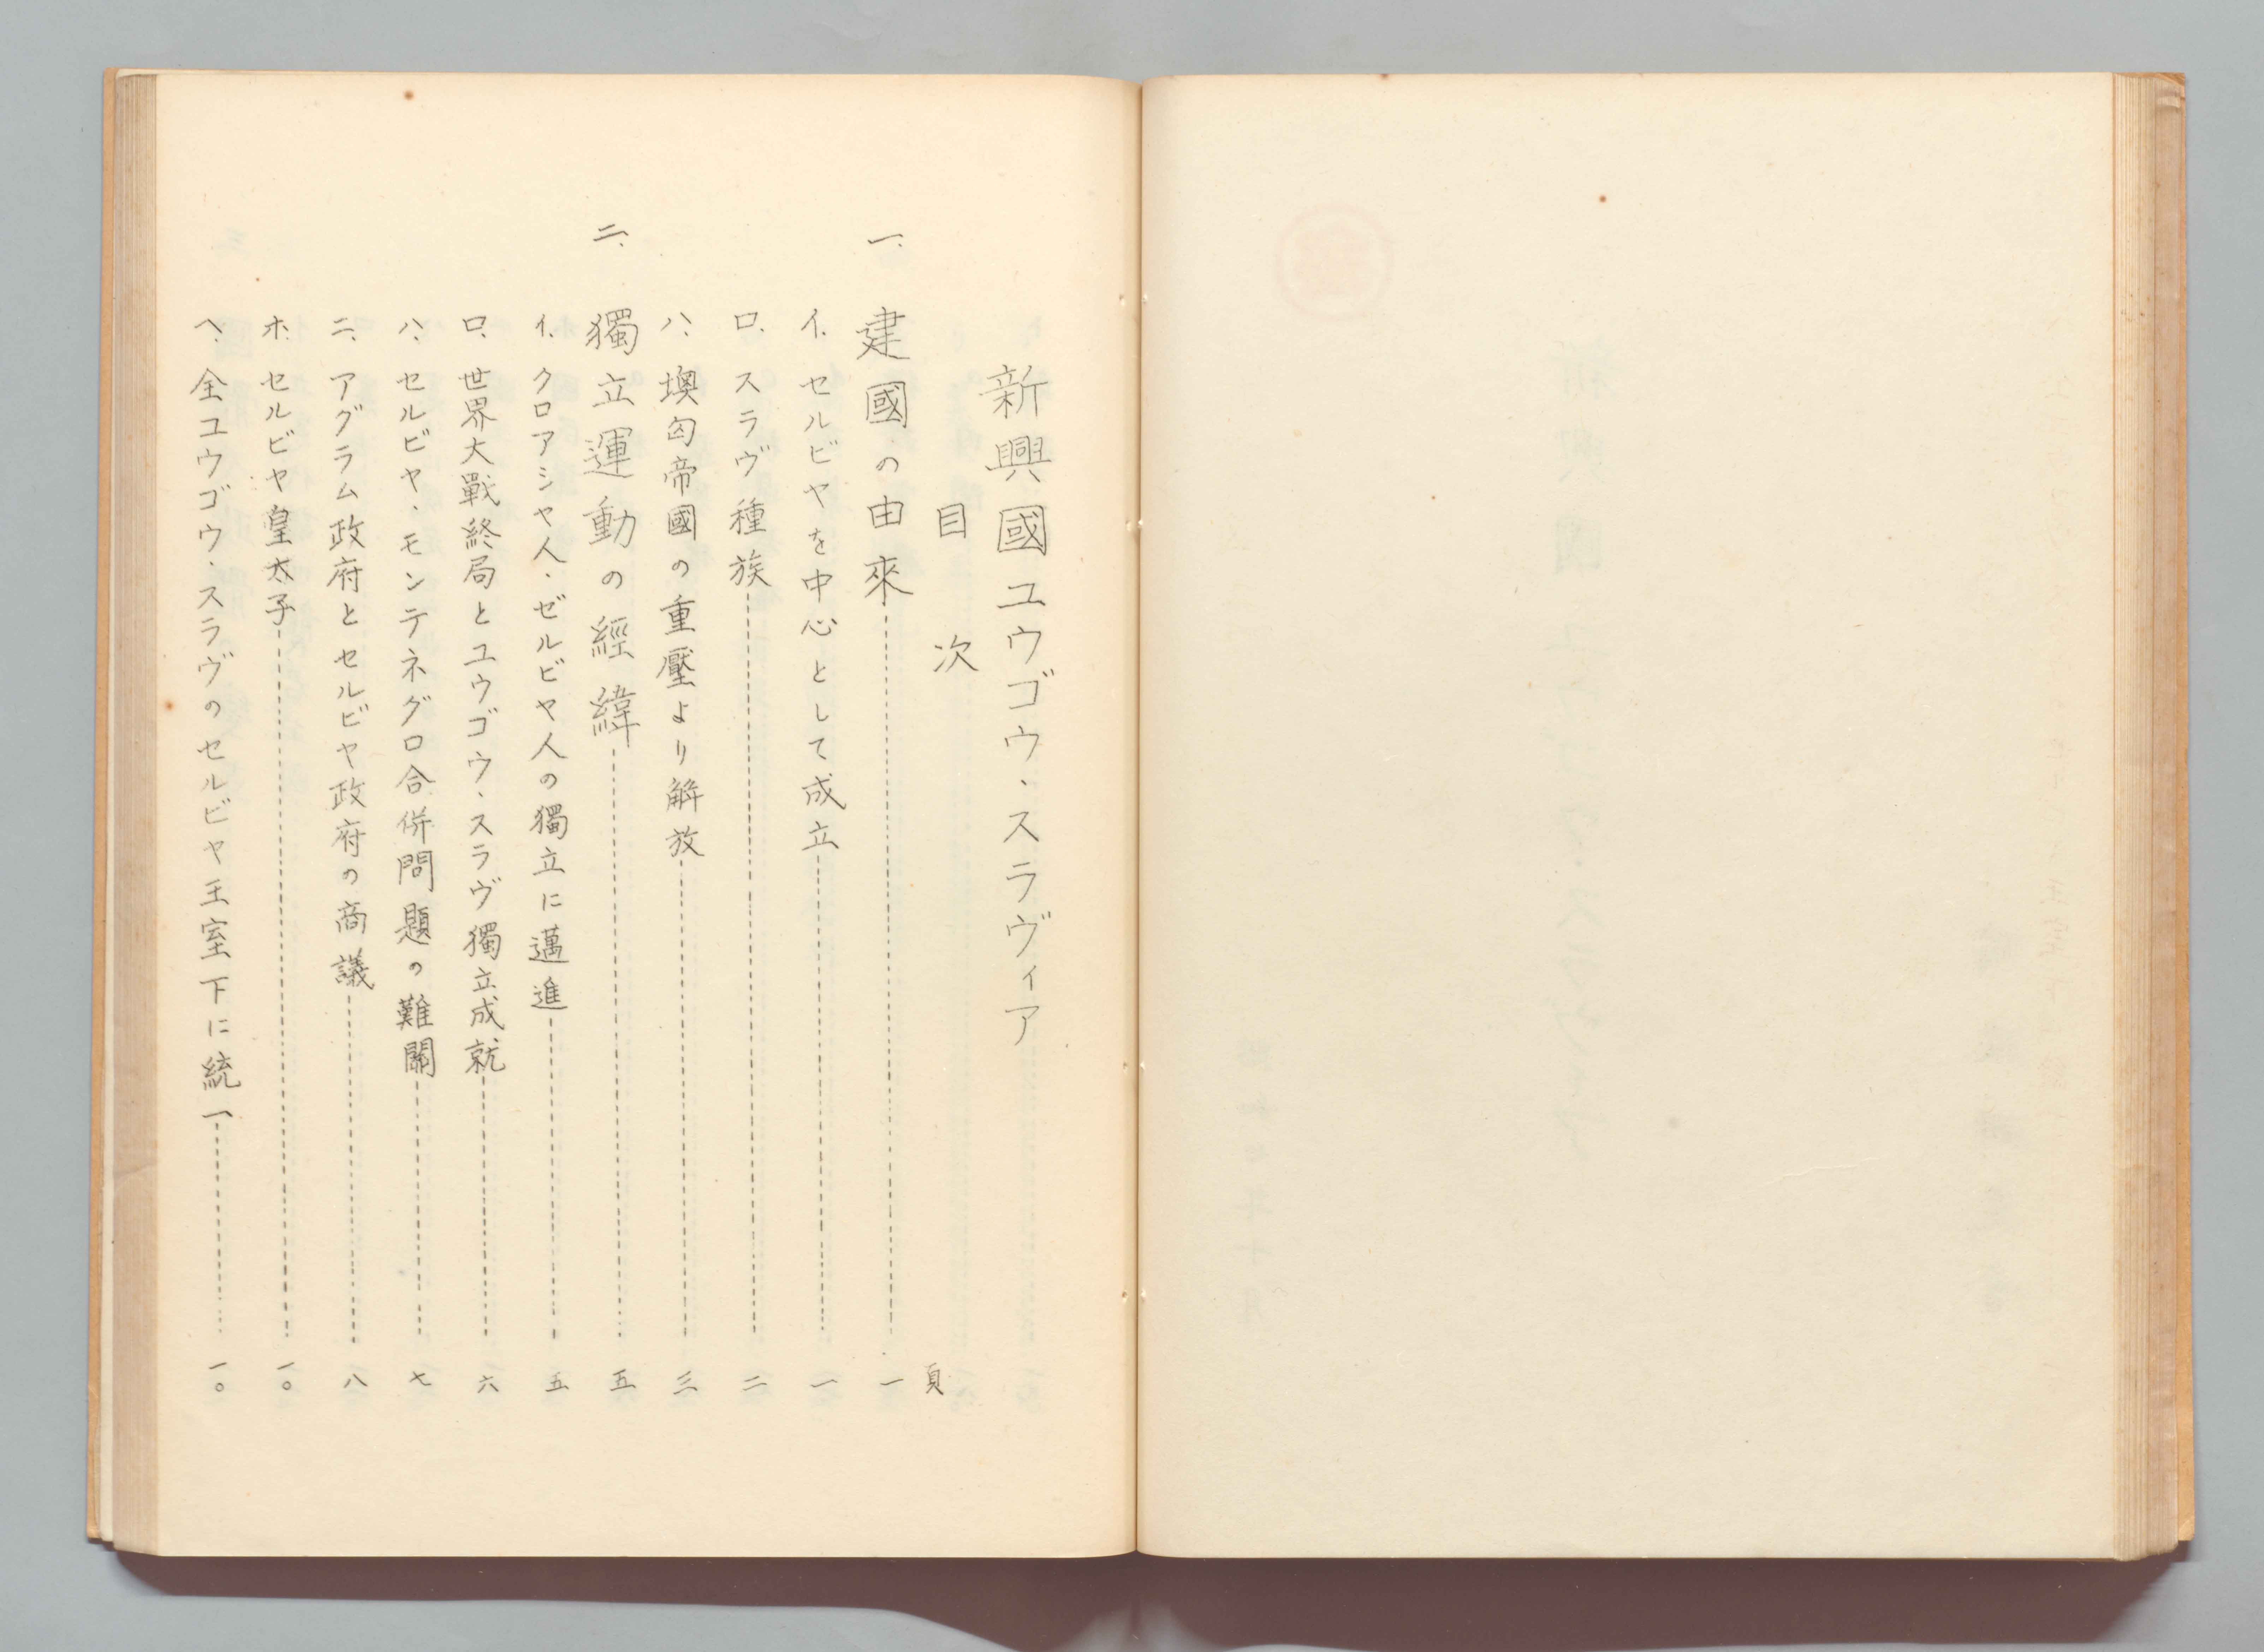 新興國ユウゴウ、スラヴィア
目次
頁
一、建國の由來 一
イ、セルビヤを中心として成立 一
ロ、スラヴ種族 二
ハ、墺匈帝國の重壓より解放 三
二、獨立運動の經緯 五
イ、クロアシヤ人、ゼルビヤ人の獨立に邁進 五
ロ、世界大戰終局とユウゴウ、スラヴ獨立成就 六
ハ、セルビヤ、モンテネグロ合併問題の難關 七
ニ、アグラム政府とセルビヤ政府の商議 八
ホ、セルビヤ皇太子 一〇
ヘ、全ユウゴウ、スラヴのセルビヤ王室下に統一 一〇